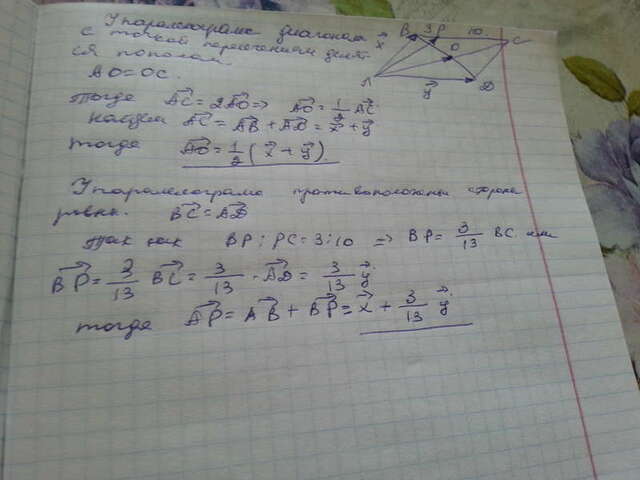 У паралелограма диагонали
с точкой пересечения делят-
ся пополам.
AO = OC.
Тогда AC⃗ = 2AO⃗ => AO⃗ = 1/2 AC⃗
Найдем AC⃗ = AB⃗ + AD⃗ = x⃗ + y⃗
тогда AO⃗ = 1/2 (x⃗ + y⃗).
У паралелограма противоположны стороны
равны. BC⃗ = AD⃗
Так как BP : PC = 3 : 10 => BP = 3/13 BC. или
BP⃗ = 3/13 BC⃗ = 3/13 · AD⃗ = 3/13 y⃗.
тогда AP⃗ = AB⃗ + BP⃗ = x⃗ + 3/13 y⃗.
B 3 P 10 C
x⃗ O
A y⃗ D